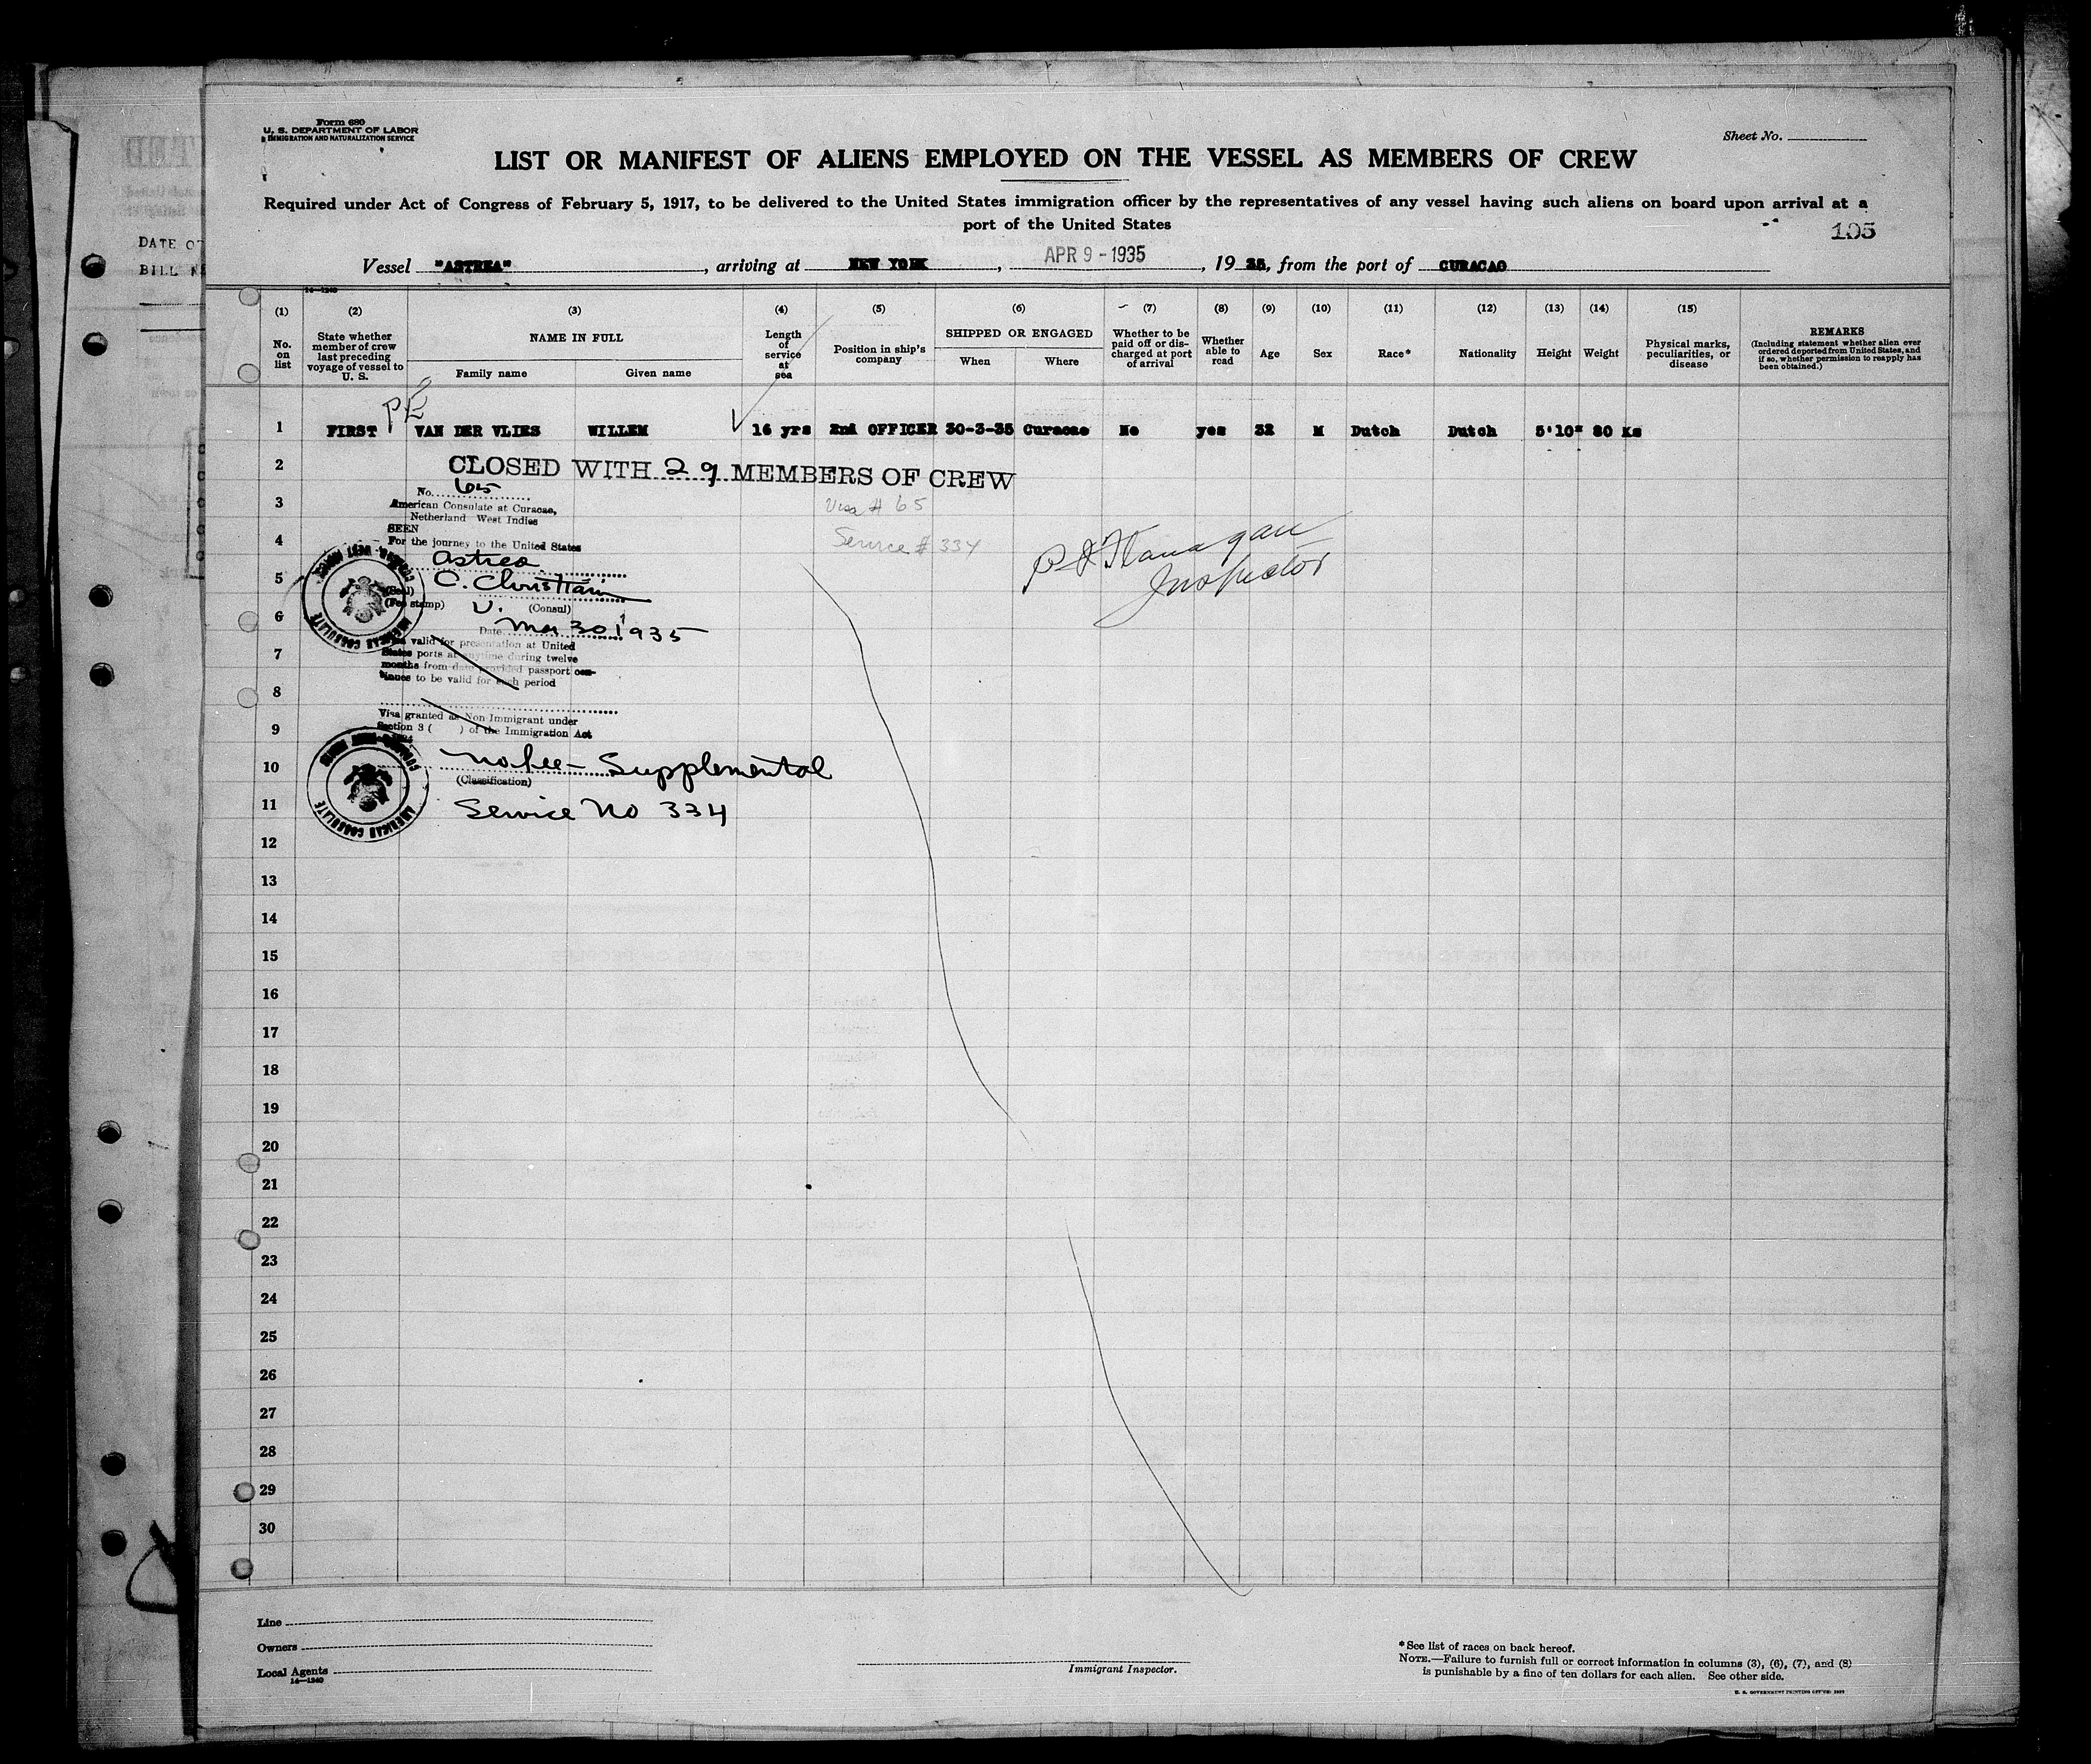 Form 680
U. S. DEPARTMENT OF LABOR
IMMIGRATION AND NATURALIZATION SERVICE
Sheet No.
LIST OR MANIFEST OF ALIENS EMPLOYED ON THE VESSEL AS MEMBERS OF CREW
Required under Act of Congress of February 5, 1917, to be delivered to the United States immigration officer by the representatives of any vessel having such aliens on board upon arrival at a
port of the United States
105
DATE O
BILL
Vessel "ASTREA", arriving at NEW YORK, APR 9 - 1935, 19 35, from the port of CURACAO
14—1240
(1) (2) (3) (4) (5) (6) (7) (8) (9) (10) (11) (12) (13) (14) (15)
No. on list
State whether member of crew last preceding voyage of vessel to U. S.
NAME IN FULL
Family name
Given name
Length of service at sea
Position in ship's company
SHIPPED OR ENGAGED
When
Where
Whether to be paid off or discharged at port of arrival
Whether able to read
Age
Sex
Race*
Nationality
Height
Weight
Physical marks, peculiarities, or disease
REMARKS
(Including statement whether alien ever ordered deported from United States, and if so, whether permission to reapply has been obtained.)
PE
1 FIRST VAN DER VLIES WILLEM 16 yrs 2nd OFFICER 30-3-35 Curacao No yes 32 M Dutch Dutch 5'10" 80 Ks
2 CLOSED WITH 29 MEMBERS OF CREW
No. 65
3 American Consulate at Curacao,
Netherland West Indies
Visa # 65
SEEN
4 For the journey to the United States
Service # 334
P J Flanagan
Inspector
Astrea
5 C. Christian
(Seal)
(Fee stamp)
(Consul)
6 Date Mar 30 1935
valid for presentation at United
7 States ports at anytime during twelve
months from date provided passport con-
tinues to be valid for such period
8
Visa granted as Non Immigrant under
9 Section 3 ( ) of the Immigration Act
AMERICAN CONSULATE
10 No fee - Supplemental
(Classification)
11 Service No 334
AMERICAN CONSULATE
12
13
14
15
16
17
18
19
20
21
22
23
24
25
26
27
28
29
30
Line
Owners
Local Agents
14—1240
Immigrant Inspector.
*See list of races on back hereof.
NOTE.—Failure to furnish full or correct information in columns (3), (6), (7), and (8)
is punishable by a fine of ten dollars for each alien. See other side.